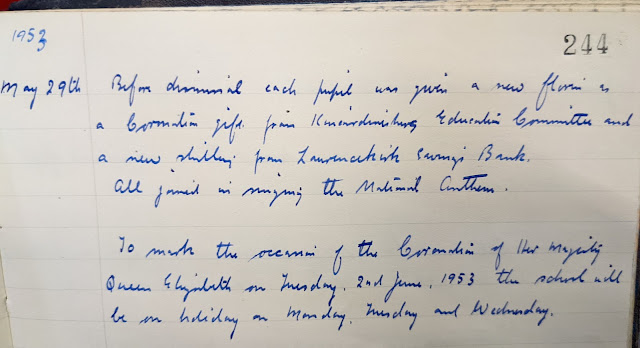 1953
244
May 29th Before dismissal each pupil was given a new florin as
a Coronation gift from Kincardineshire Education Committee and
a new shilling from Laurencekirk Savings Bank.
All joined in singing the National Anthem.
To mark the occasion of the Coronation of Her Majesty
Queen Elizabeth on Tuesday, 2nd June, 1953 the school will
be on holiday on Monday, Tuesday and Wednesday.